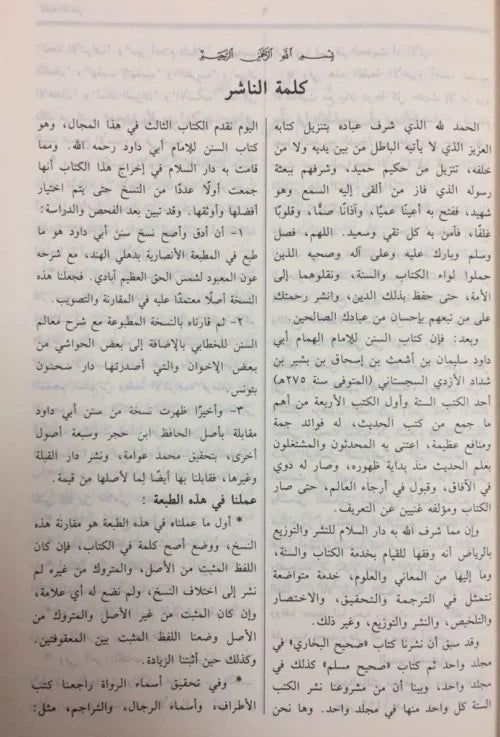 بسم الله الرحمن الرحيم
كلمة الناشر
الحمد لله الذي شرف عباده بتنزيل كتابه
العزيز الذي لا يأتيه الباطل من بين يديه ولا من
خلفه، تنزيل من حكيم حميد، وشرفهم ببعثة
رسوله الذي فاز من ألقى إليه السمع وهو
شهيد، ففتح به أعينًا عميًا، وآذانًا صمًّا، وقلوبًا
غلفًا، فآمن به كل تقي وسعيد. اللهم، فصل
وسلم وبارك عليه وعلى آله وصحبه الذين
حملوا لواء الكتاب والسنة، ونقلوهما إلى
الأمة، حتى حفظ بذلك الدين، وانشر رحمتك
على من تبعهم بإحسان من عبادك الصالحين.
وبعد: فإن كتاب السنن للإمام الهمام أبي
داود سليمان بن أشعث بن إسحاق بن بشير بن
شداد الأزدي السجستاني (المتوفى سنة ٢٧٥هـ)
أحد الكتب الستة وأول الكتب الأربعة من أهم
ما جمع من كتب الحديث، له فوائد جمة
ومنافع عظيمة، اعتنى به المحدثون والمشتغلون
بعلم الحديث منذ بداية ظهوره، وصار له دوي
في الآفاق، وقبول في أرجاء العالم، حتى صار
الكتاب ومؤلفه غنيين عن التعريف.
وإن مما شرف الله به دار السلام للنشر والتوزيع
بالرياض أنه وفقها للقيام بخدمة الكتاب والسنة،
وما إليها من المعاني والعلوم، خدمة متواضعة
تتمثل في الترجمة والتحقيق، والاختصار
والتلخيص، والنشر والتوزيع، وغير ذلك.
وقد سبق أن نشرنا كتاب «صحيح البخاري» في
مجلد واحد ثم كتاب «صحيح مسلم» كذلك في
مجلد واحد، وبينا أن من مشروعنا نشر الكتب
الستة كل واحد منها في مجلد واحد. وها نحن
اليوم نقدم الكتاب الثالث في هذا المجال، وهو
كتاب السنن للإمام أبي داود رحمه الله. ومما
قامت به دار السلام في إخراج هذا الكتاب أنها
جمعت أولًا عددًا من النسخ حتى يتم اختيار
أفضلها وأوثقها. وقد تبين بعد الفحص والدراسة:
١- أن أدق وأصح نسخ سنن أبي داود هو ما
طبع في المطبعة الأنصارية بدهلي الهند، مع شرحه
عون المعبود لشمس الحق العظيم آبادي. فجعلنا هذه
النسخة أصلًا معتمدًا عليه في المقارنة والتصويب.
٢- ثم قارناه بالنسخة المطبوعة مع شرح معالم
السنن للخطابي بالإضافة إلى بعض الحواشي من
بعض الإخوان والتي أصدرتها دار سحنون
بتونس.
٣- وأخيرًا ظهرت نسخة من سنن أبي داود
مقابلة بأصل الحافظ ابن حجر وسبعة أصول
أخرى، بتحقيق محمد عوامة، ونشر دار القبلة
وغيرها، فقابلنا بها أيضًا لما لأصلها من قيمة.
عملنا في هذه الطبعة :
* أول ما عملناه في هذه الطبعة هو مقارنة هذه
النسخ، ووضع أصح كلمة في الكتاب، فإن كان
اللفظ المثبت من الأصل، والمتروك من غيره لم
نشر إلى اختلاف النسخ، ولم نضع له أي علامة،
وإن كان المثبت من غير الأصل والمتروك من
الأصل وضعنا اللفظ المثبت بين المعقوفتين.
وكذلك حين أثبتنا الزيادة.
* وفي تحقيق أسماء الرواة راجعنا كتب
الأطراف، وأسماء الرجال، والتراجم، مثل: